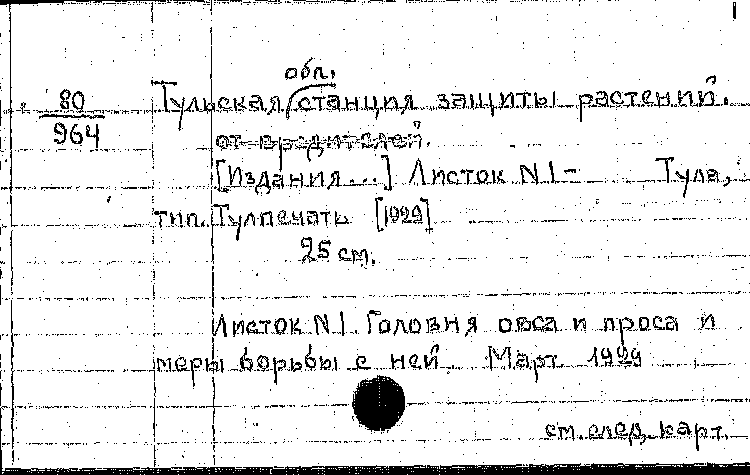 1
обл.
80 Тульская станция защиты растений.
964
от вредителей.
[Издания...] Листок N 1 - Тула,
тип. Тулпечать [1929]
25 см.
Листок N 1. Головня овса и проса и
меры борьбы с ней. Март 1929
см. след. карт.